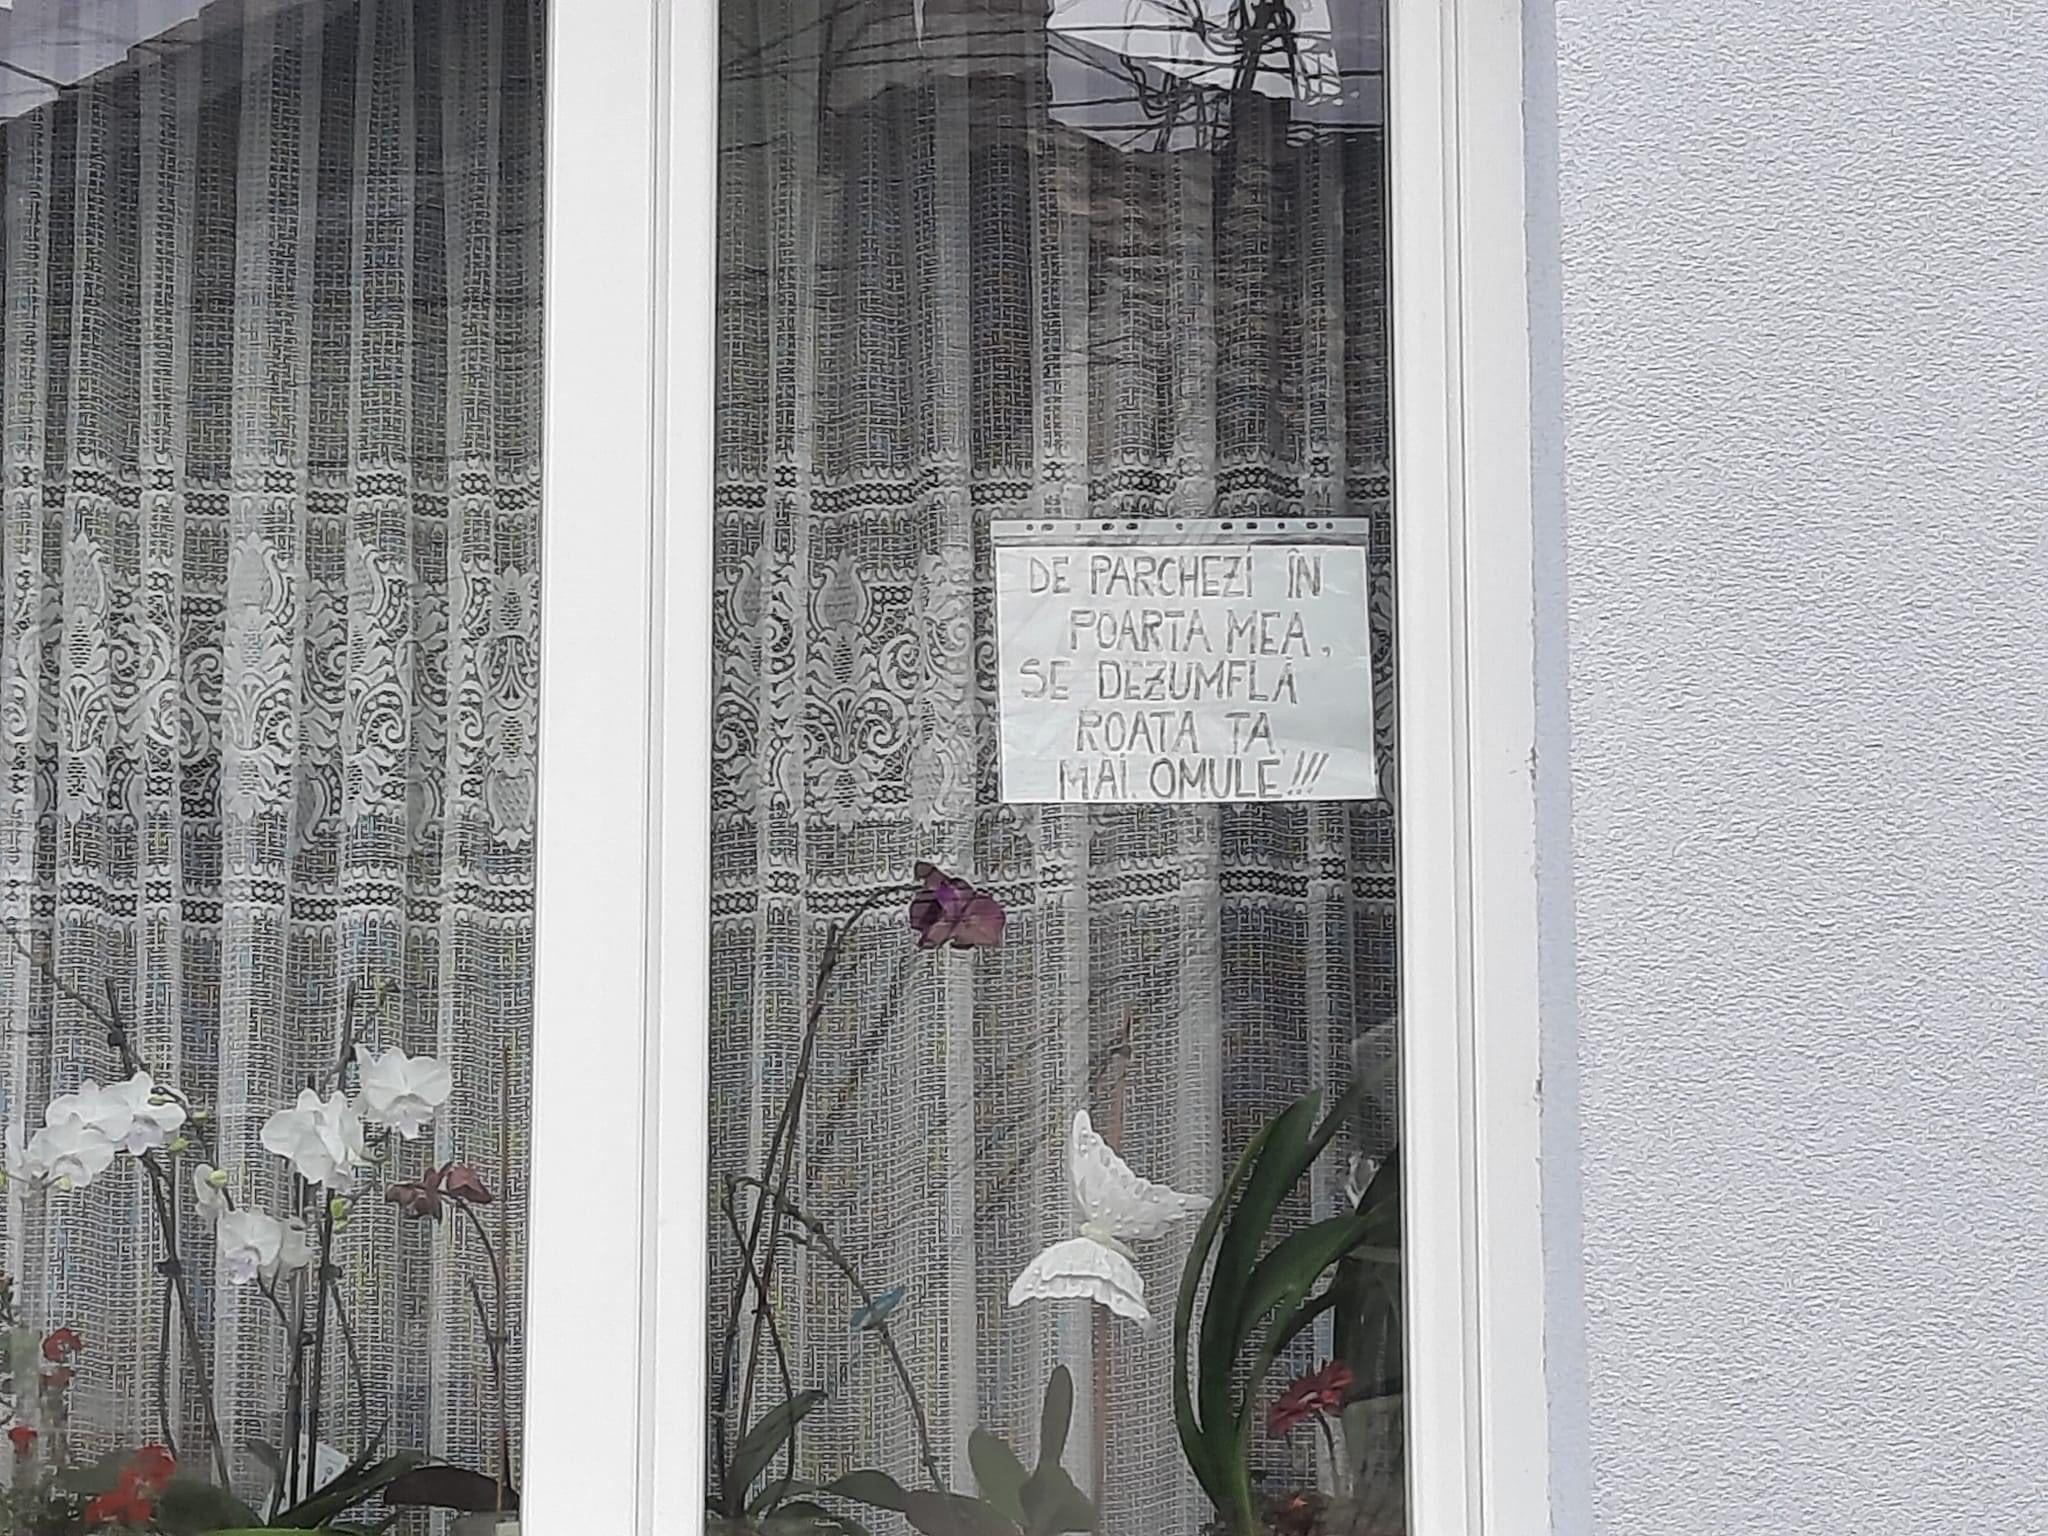 DE PARCHEZI ÎN
POARTA MEA,
SE DEZUMFLĂ
ROATA TA
MĂI OMULE!!!